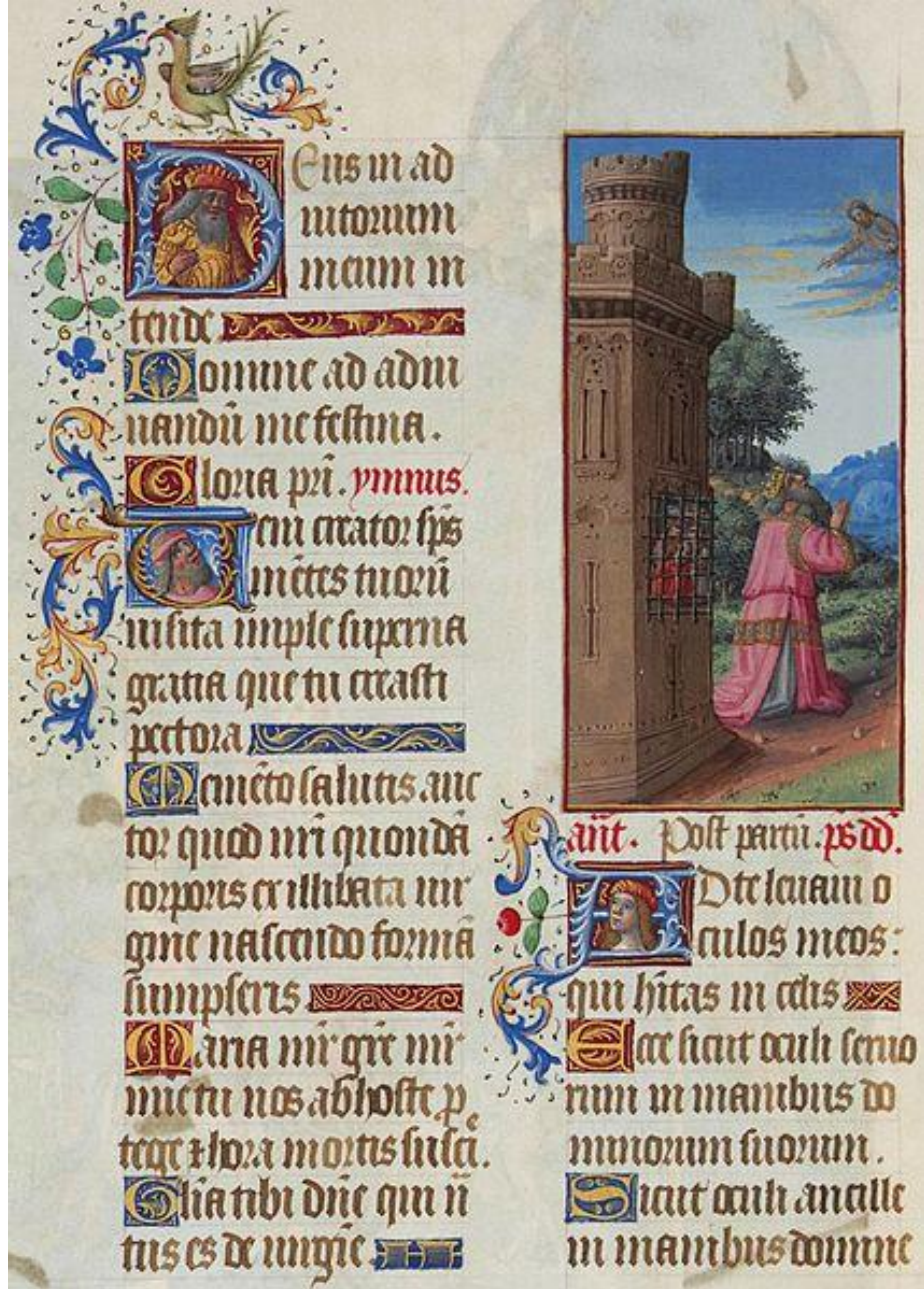 Deus in ad
iutorium
meum in
tende
Domine ad adiu
uandū me festina.
Gloria pr̄i. ymnus.
Ueni creator sp̄s
mētes tuorū
uisita imple superna
gratia que tu creasti
pectora
Memēto salutis auc
tor quod nr̄i quondā
corporis ex illibata uir
gine nascendo formā
sumpseris
Maria uirgīe mr̄
mīe tu nos ab hoste p̱
tege ⁊ hora mortis susci.
Gl̄ia tibi dn̄e qui n̄
tus es de uirgīe
ant̄. Post partū. ps dd̄.
AD te leuaui o
culos meos:
qui hītas in celis
Ecce sicut oculi seruo
rum in manibus do
minorum suorum.
Sicut oculi ancille
in manibus domine